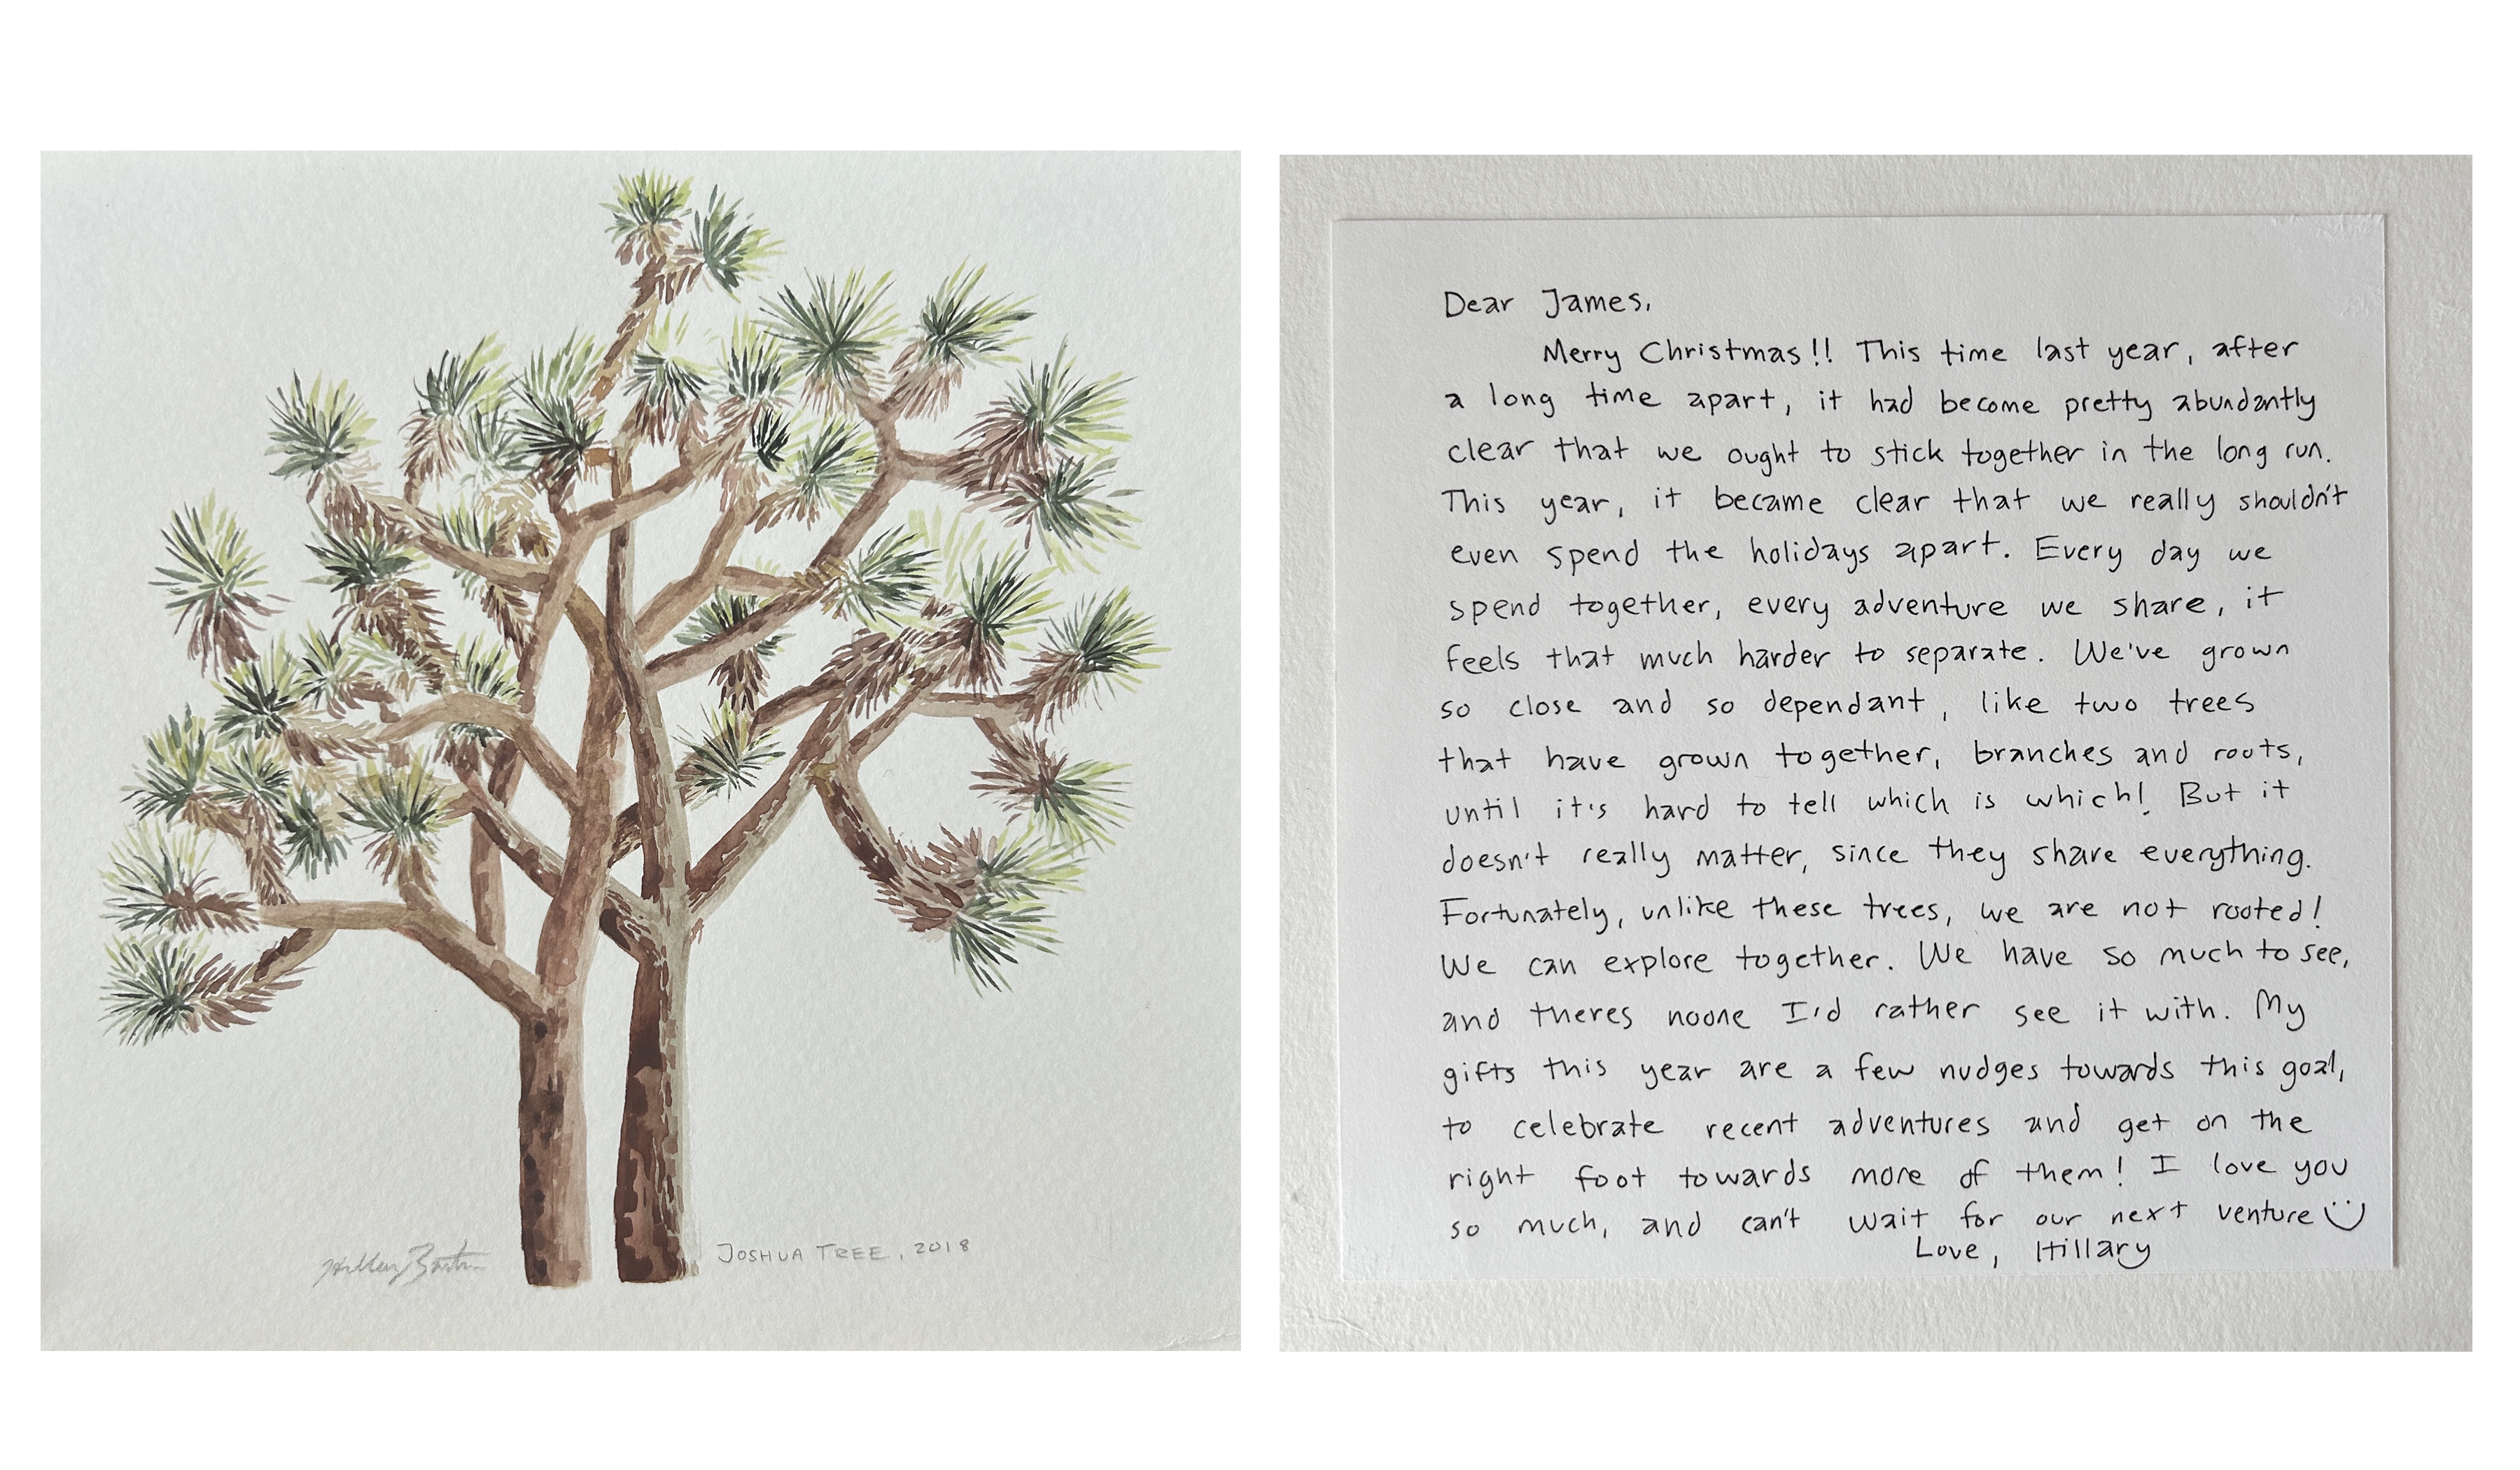 JOSHUA TREE, 2018
Dear James,
Merry Christmas!! This time last year, after
a long time apart, it had become pretty abundantly
clear that we ought to stick together in the long run.
This year, it became clear that we really shouldn't
even spend the holidays apart. Every day we
spend together, every adventure we share, it
feels that much harder to separate. We've grown
so close and so dependant, like two trees
that have grown together, branches and roots,
until it's hard to tell which is which! But it
doesn't really matter, since they share everything.
Fortunately, unlike these trees, we are not rooted!
We can explore together. We have so much to see,
and theres noone I'd rather see it with. My
gifts this year are a few nudges towards this goal,
to celebrate recent adventures and get on the
right foot towards more of them! I love you
so much, and can't wait for our next venture
Love, Hillary